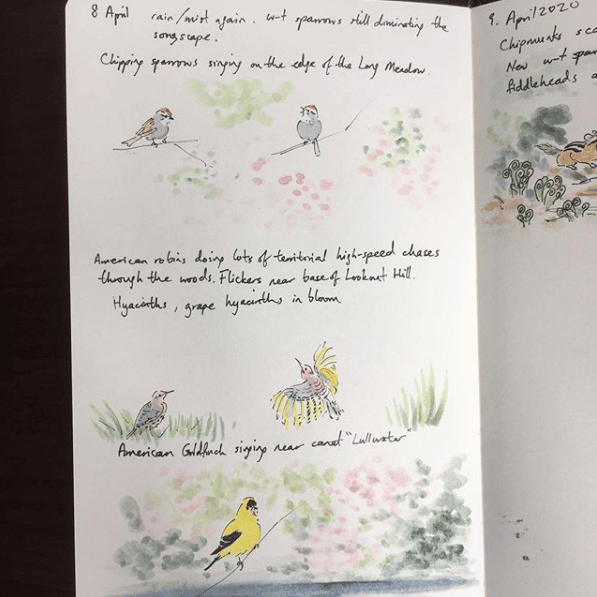 8 April rain/mist again. w-t sparrows still dominating the
songscape.
Chipping sparrows singing on the edge of the Long Meadow.
American robins doing lots of territorial high-speed chases
through the woods. Flickers near base of Lookout Hill.
Hyacinths, grape hyacinths in bloom
American Goldfinch singing near canal "Lullwater"
9. April 2020
Chipmunks
New w-t
fiddleheads